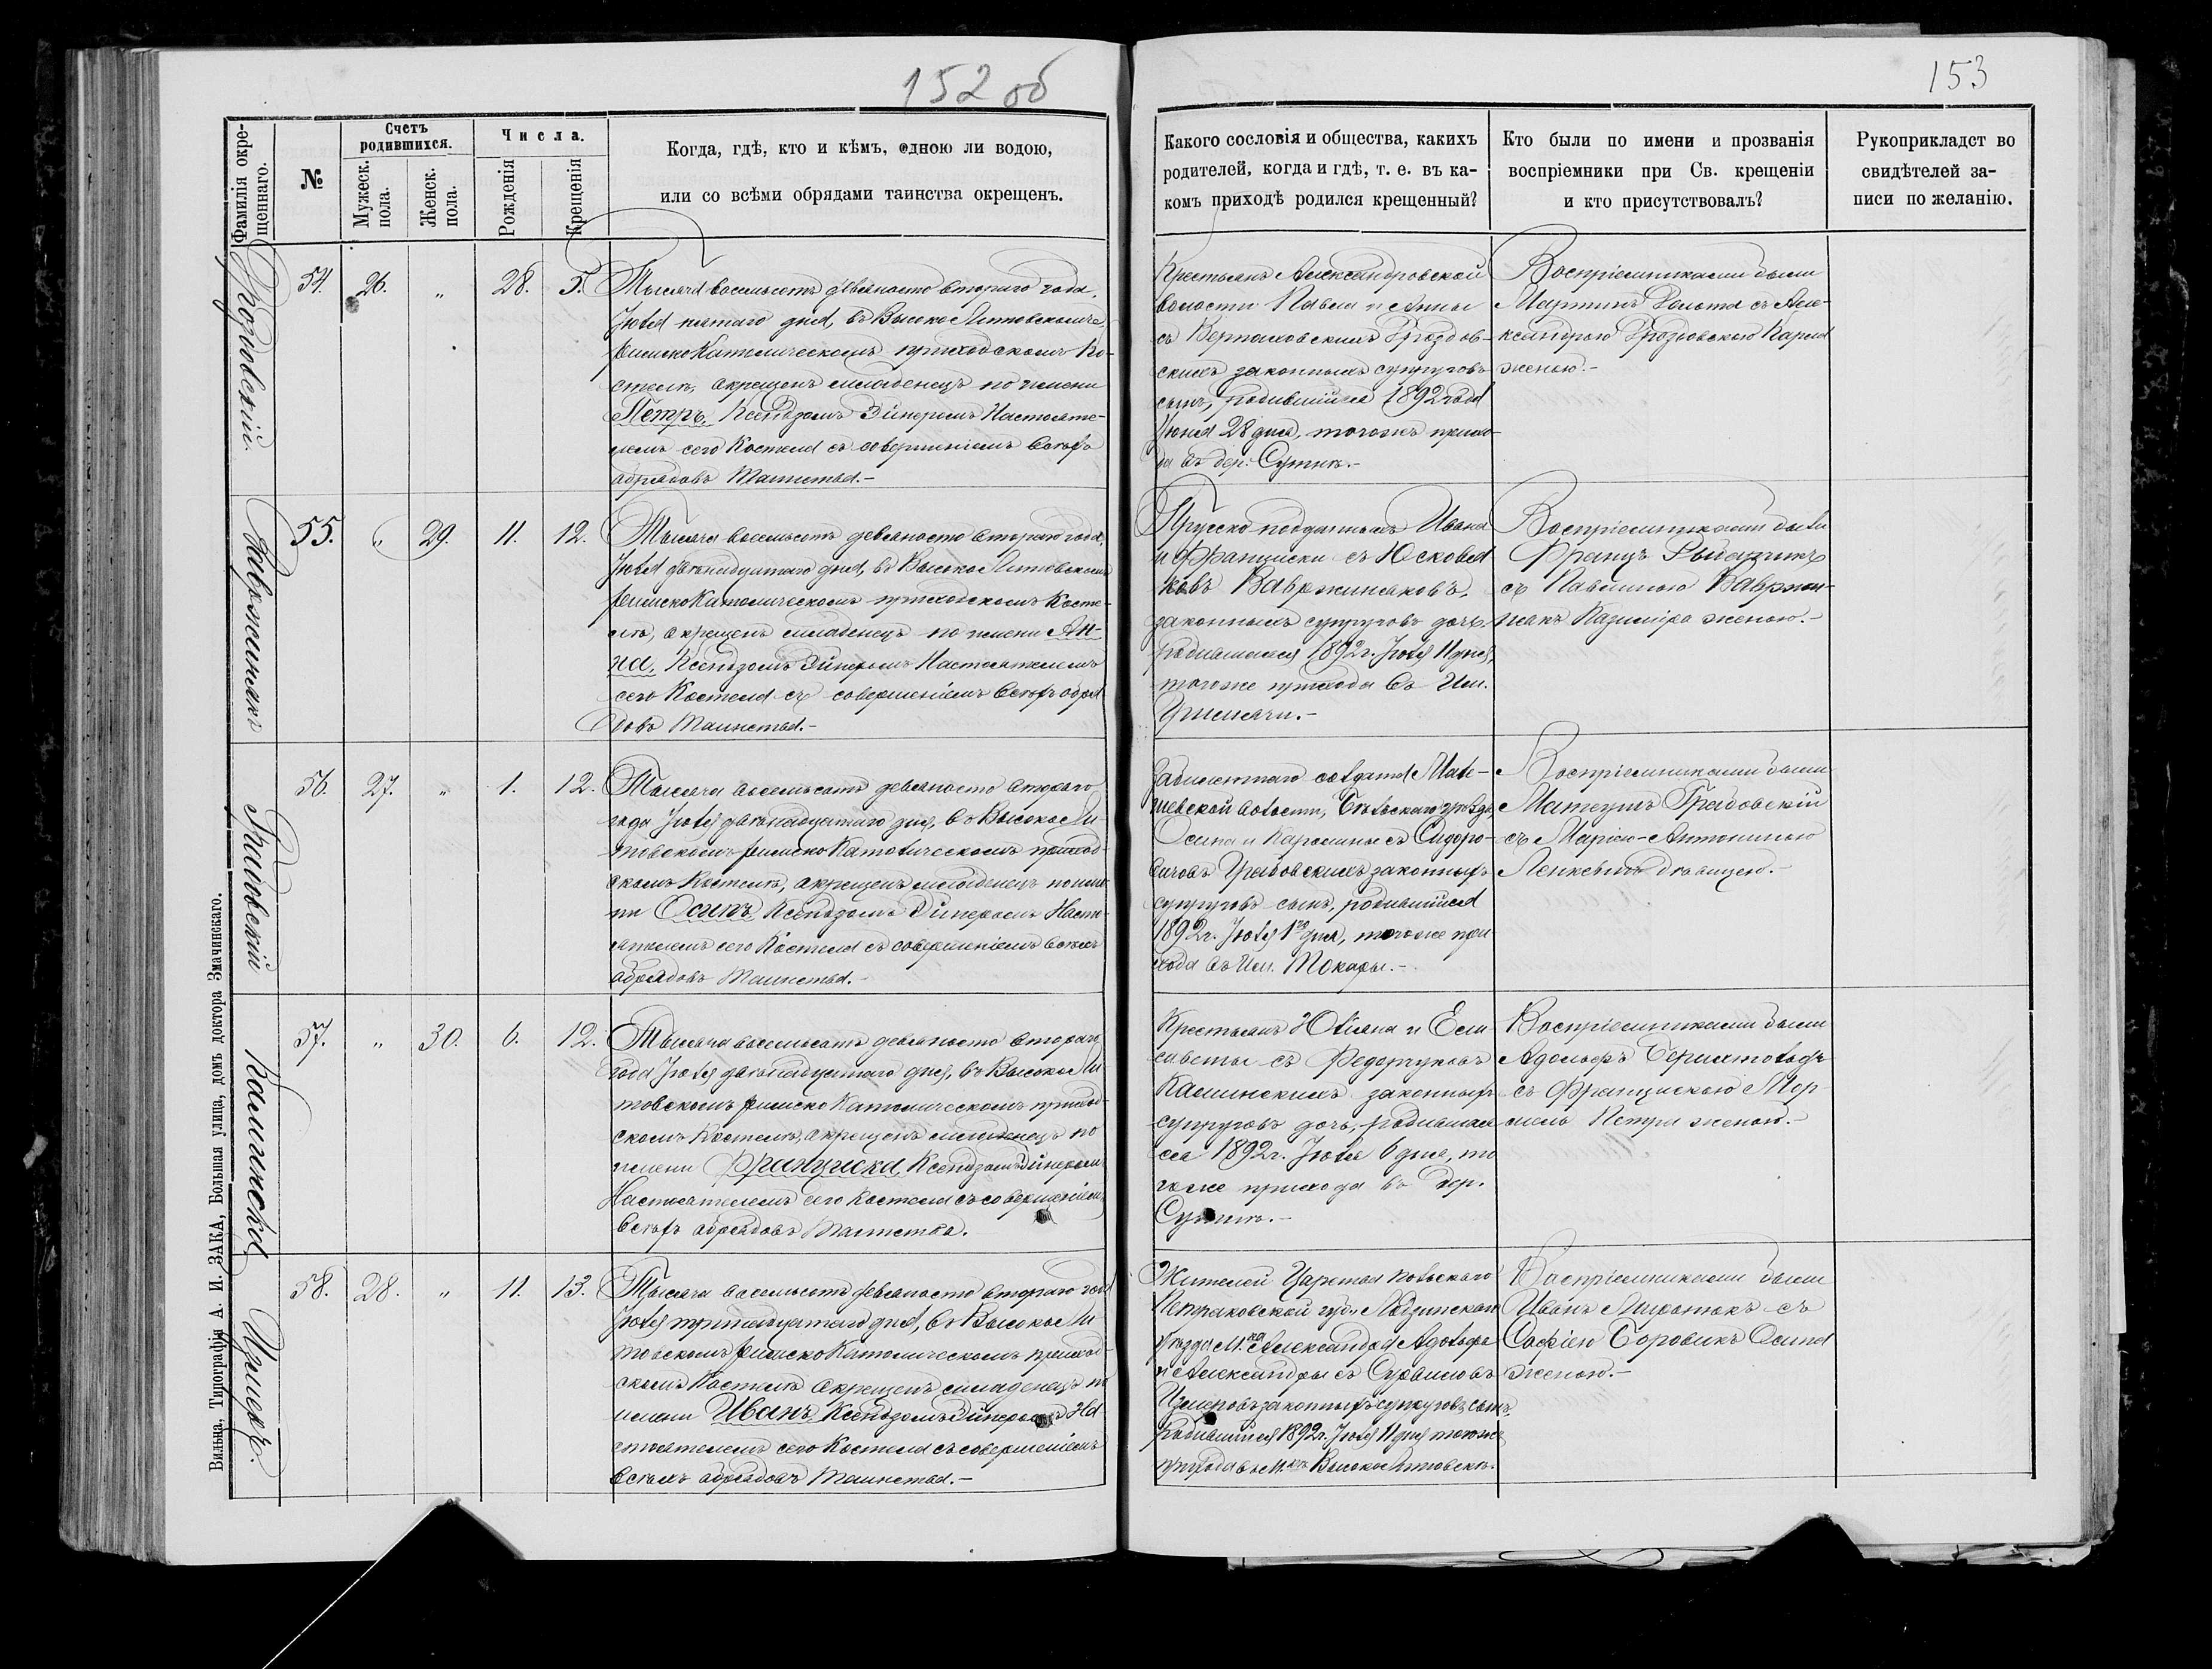 152 об
153
Фамилія окре-
щеннаго.
№
Счетъ
родившихся.
Мужеск.
пола.
Женск.
пола.
Числа.
Рожденія
Крещенія
Когда, гдѣ, кто и кѣмъ, одною ли водою,
или со всѣми обрядами таинства окрещенъ.
Какого сословія и общества, какихъ
родителей, когда и гдѣ, т. е. въ ка-
комъ приходѣ родился крещенный?
Кто были по имени и прозванія
воспріемники при Св. крещеніи
и кто присутствовалъ?
Рукоприкладст во
свидѣтелей за-
писи по желанію.
54. 26. " 28. 5.
Тысяча восемьсотъ девяносто втораго года,
Іюля пятаго дня, въ Высоко Литовскомъ
Римско Католическомъ приходскомъ Ко-
стелѣ, окрещенъ младенецъ по имени
Петръ, Ксендзомъ Настояте-
лемъ сего Костела съ совершеніемъ всѣхъ
обрядовъ Таинства.-
Крестьянъ Александровской
волости Павла и Анны
съ
скихъ законныхъ супруговъ
сынъ, родившійся 1892 года
Іюня 28 дня, тогожъ прихо-
да въ дер.
Воспріемниками были
Мартинъ съ Але-
ксандрою Карла
женою.-
Вавржинякъ
55. " 29. 11. 12.
Тысяча восемьсотъ девяносто втораго года,
Іюля двѣнадцатаго дня, въ Высоко Литовскомъ
Римско Католическомъ приходскомъ Косте-
лѣ, окрещенъ младенецъ по имени Ан-
на, Ксендзомъ Настоятелемъ
сего Костела съ совершеніемъ всѣхъ обря-
довъ Таинства.-
Прусско подданныхъ Ивана
и Франциски съ
Вавржиняковъ,
законныхъ супруговъ дочь,
родившаяся 1892 г. Іюля 11 дня,
тогоже прихода въ Им.
Воспріемниками были
Францъ
съ Павлиною Вавржи-
някъ Казиміра женою.-
Грабовскій
56. 27. " 1. 12.
Тысяча восемьсотъ девяносто втораго
года Іюля двѣнадцатаго дня, въ Высоко Ли-
товскомъ Римско Католическомъ приход-
скомъ Костелѣ, окрещенъ младенецъ по име-
ни Осипъ, Ксендзомъ Насто-
ятелемъ сего Костела съ совершеніемъ всѣхъ
обрядовъ Таинства.-
солдата
волости, Бѣльскаго уѣзда,
Осипа и Каролины съ Сидоро-
вичовъ Грабовскихъ законныхъ
супруговъ сынъ, родившійся
1892 г. Іюля 1го дня, тогоже при
хода въ Им. Токары.-
Воспріемниками были
Матеушъ Грабовскій
съ Маріею-Антониною
дѣвицею.-
Каминска
57. " 30. 6. 12.
Тысяча восемьсотъ девяносто втораго
года Іюля двѣнадцатаго дня, въ Высоко Ли
товскомъ Римско Католическомъ приход-
скомъ Костелѣ, окрещенъ младенецъ по
имени Франциска, Ксендзомъ
Настоятелемъ сего Костела съ совершеніемъ
всѣхъ обрядовъ Таинства.
Крестьянъ Юліана и Ели-
саветы съ Федорчуковъ
Каминскихъ законныхъ
супруговъ дочь, родившая
ся 1892 г. Іюля 6 дня, то
гоже прихода въ дер.
Воспріемниками были
Адольфъ
съ Францискою
Петра женою.-
Цимеръ.
58. 28. " 11. 13.
Тысяча восемьсотъ девяносто втораго года
Іюля тринадцатаго дня, въ Высоко Ли
товскомъ Римско Католическомъ приход-
скомъ Костелѣ окрещенъ младенецъ по
имени Иванъ, Ксендзомъ На-
стоятелемъ сего Костела съ совершеніемъ
всѣхъ обрядовъ Таинства.-
Жителей Царства Польскаго
Петраковской губ. Лодзинскаго
уѣзда М. Александрова Адольфа
и Александры съ
законныхъ супруговъ сынъ,
родившійся 1892 г. Іюля 11 дня тогоже
прихода въ М. Высоко Литовскѣ.
Воспріемниками были
Иванъ съ
Софіею Боровикъ Осипа
женою.-
Вильна, Типографія А. И. ЗАКА, Большая улица, домъ доктора Змачинскаго.